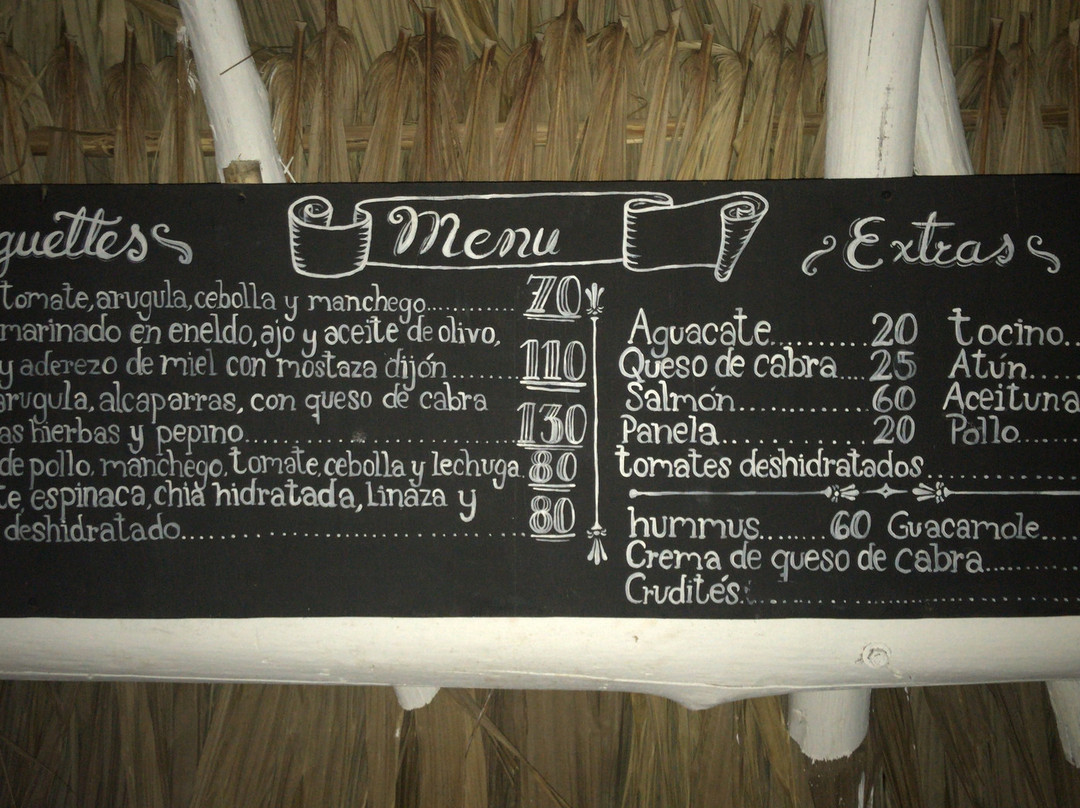 guettes
tomate, arugula, cebolla y manchego............ 70
marinado en eneldo, ajo y aceite de olivo,
y aderezo de miel con mostaza dijón......... 110
arugula, alcaparras, con queso de cabra
as hierbas y pepino................................. 130
de pollo, manchego, tomate, cebolla y lechuga. 80
te, espinaca, chia hidratada, linaza y
deshidratado.......................................... 80
Menu
Extras
Aguacate.......... 20 tocino..
Queso de cabra.... 25 Atún....
Salmón.............. 60 Aceituna
Panela............... 20 Pollo.....
tomates deshidratados................
hummus...... 60 Guacamole...
Crema de queso de cabra..........
Crudités:...................................